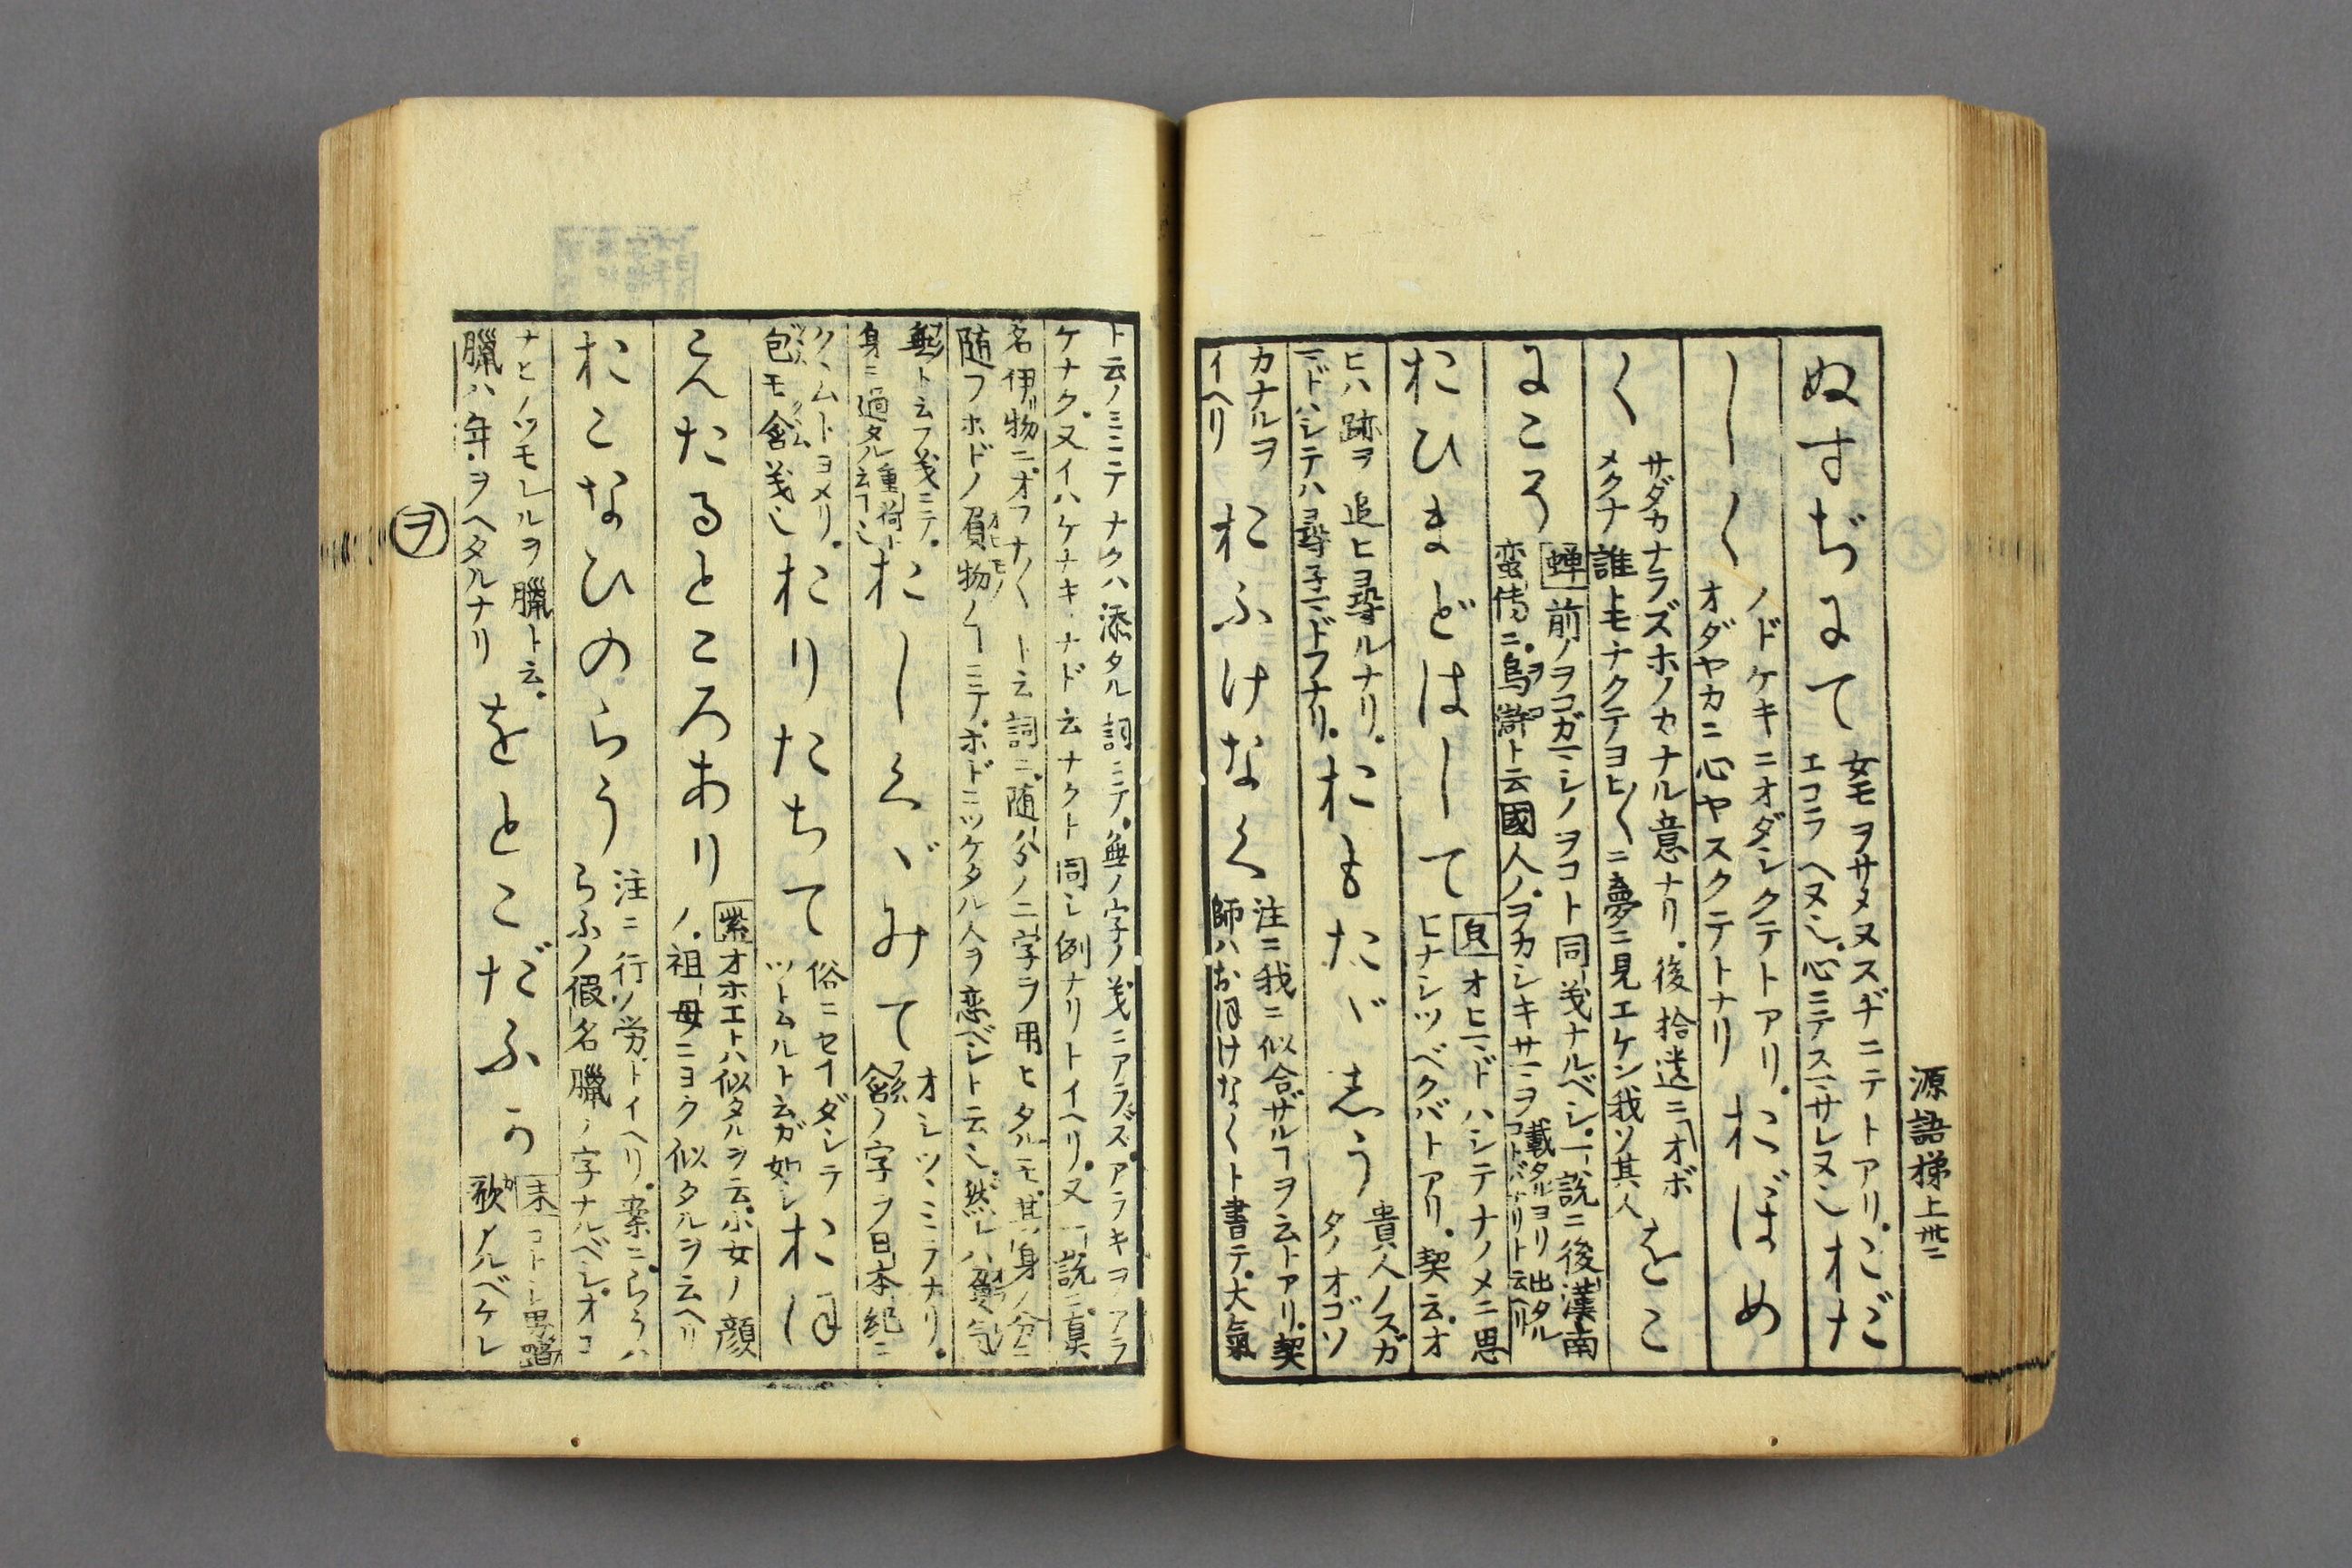 源語梯上
ぬすぢにて
女モヲサメヌスヂニテトアリ
エコラヘヌ也心ニテスマサレヌ也
おだ
しく
ノドケキニオダシクテトアリ
オダヤカニ心ヤスクテトナリ
おぼめ
く
サダカナラズホノカナル意ナリ。後拾遺ニオボ
メクナ誰トモナクテヨヒ〱ニ夢ニ見エケン我ソ其人
をこ
にころ
蝉前ノヲコガマシノヲコト同義ナルベシ。一説ニ後漢南
蛮傳ニ烏滸ト云國人ノヲカシキサマヲ載タルヨリ出タル
コトバナリト云ヘリ
おひまどはして
オヒマドハシテナノメニ思
ヒナシツベクバトアリ。契云オ
ヒハ跡ヲ追ヒ尋ルナリ。
マドハシテハ尋子マドフナリ。
おもたゞしう
貴人ノスガ
タノオゴソ
カナルヲ
イヘリ
おふけなく
注ニ我ニ似合ザルヿヲ云トアリ。契
師ハおほけなくト書テ大氣
ト云ノミニテナクハ添タル詞ニテ。無ノ字ノ義ニアラズ。アラキヲアラ
ケナク。又イハケナキナド云ナクト同シ例ナリトイヘリ。又一説ニ真
名伊物ニ。オフナ〱ト云詞ニ。随分ノ二字ヲ用ヒタルモ。其身ノ分ニ
随フホドノ負物ノヿニテ。ホドニツケタル人ヲ恋ベシト云也。然レハ負気
無ト云フ義ニテ。
身ニ過タル重荷ト云フ也
おしくゝみて
オシツヽミテナリ。
含ノ字ヲ日本紀ニ
クヽムトヨメリ。
包モ含義也
おりたちて
俗ニセイダシテ
ツトムルト云ガ如シ
おほ
えたるところあり
紫オホエトハ似タルヲ云。小女ノ顔
ノ。祖母ニヨク似タルヲ云ヘリ
おこなひのらう
注ニ行ノ労トイヘリ。案ニ。らうハ
らふノ假名臘ノ字ナルベシ。オコ
ナヒノツモレルヲ臘ト云。
臘ハ年ヲヘタルナリ
をとこだふか
末コトシ男踏
歌アルベケレ
ヲ